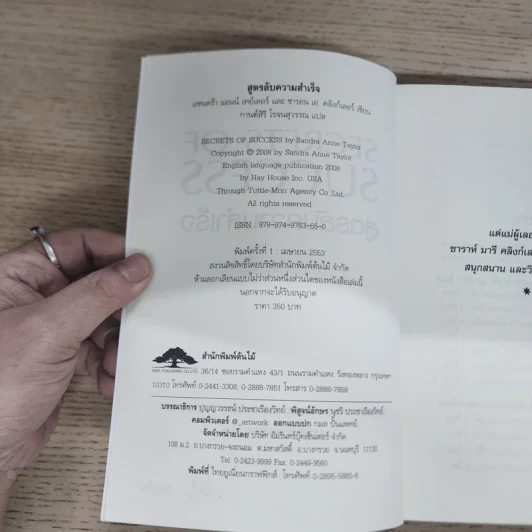 สูตรลับความสำเร็จ
แซนดร้า แอนน์ เทย์เลอร์ และ ชารอน เอ. คลิงก์เลอร์ เขียน
กานต์สิริ โรจนสุวรรณ แปล
SECRETS OF SUCCESS by Sandra Anne Taylor
Copyright © 2008 by Sandra Anne Taylor
English language publication 2008
by Hay House Inc. USA
Through Tuttle-Mori Agency Co.,Ltd.
All rights reserved.
ISBN : 978-974-9763-65-0
พิมพ์ครั้งที่ 1 : เมษายน 2553
สงวนลิขสิทธิ์โดยบริษัทสำนักพิมพ์ต้นไม้ จำกัด
ห้ามลอกเลียนแบบไม่ว่าส่วนหนึ่งส่วนใดของหนังสือเล่มนี้
นอกจากจะได้รับอนุญาต
ราคา 350 บาท
สำนักพิมพ์ต้นไม้
36/14 ซอยรามคำแหง 43/1 ถนนรามคำแหง วังทองหลาง กรุงเทพฯ
10310 โทรศัพท์ 0-2441-3308, 0-2888-7851 โทรสาร 0-2888-7859
บรรณาธิการ ปุญญวรรธน์ ประชาเรืองวิทย์ พิสูจน์อักษร นุชรี ประชาเรืองวิทย์
คอมพิวเตอร์ @_artwork ออกแบบปก กมล ปั้นแพทย์
จัดจำหน่ายโดย บริษัท อัมรินทร์บุ๊คเซ็นเตอร์ จำกัด
108 ม.2 ถ.บางกรวย-จงถนอม ต.มหาสวัสดิ์ อ.บางกรวย จ.นนทบุรี 11130
Tel. 0-2423-9999 Fax: 0-2449-9560
พิมพ์ที่ ไทยยูเนี่ยนกราฟฟิกส์ โทรศัพท์ 0-2895-5865-6
แด่แม่ผู้เลอ
ซาราห์ มารี คลิงก์เล
สนุกสนาน และวิ